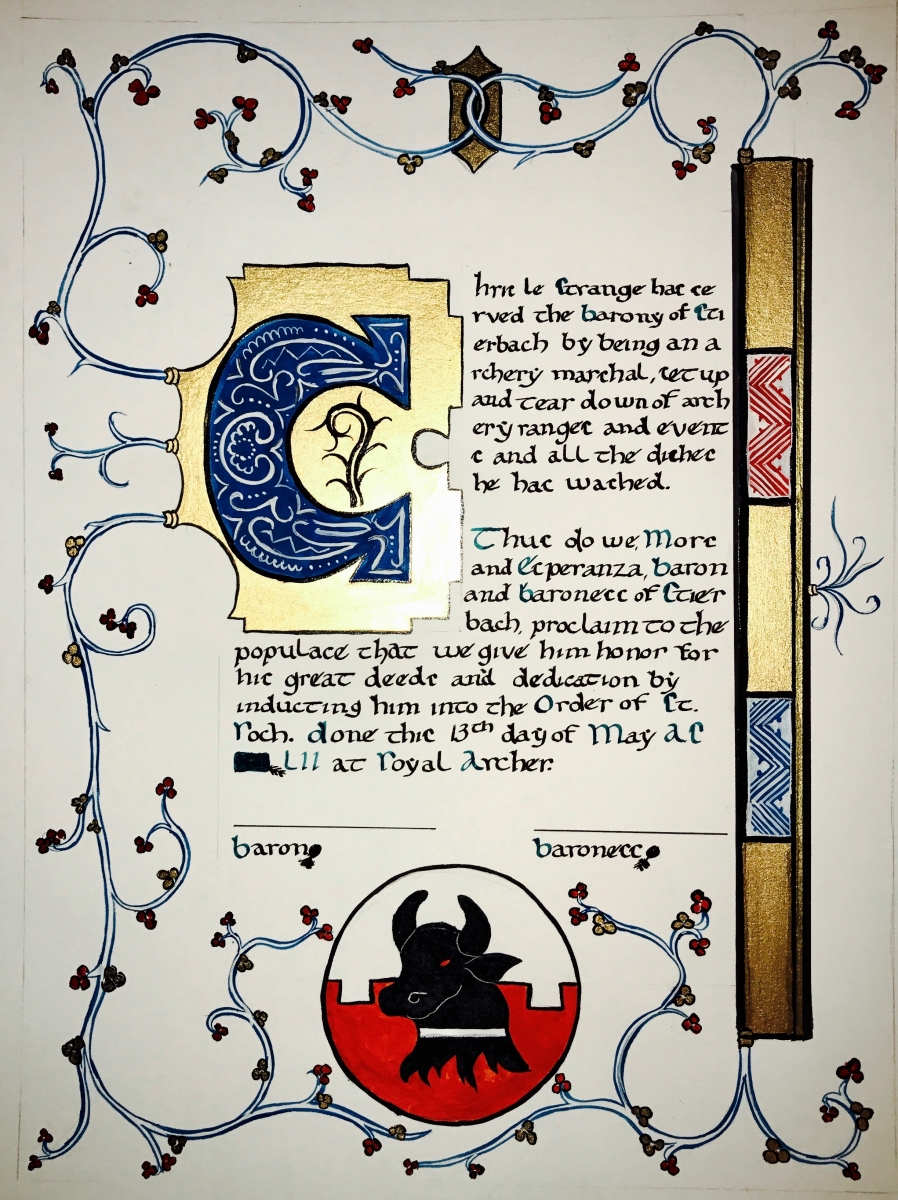 Chris le Strange has se
rved the barony of Sti
erbach by being an a
rchery marshal, set up
and tear down of arch
ery ranges and event
s and all the dishes
he has washed.
Thus do we, Mors
and Esperanza, baron
and baroness of Stier
bach, proclaim to the
populace that we give him honor for
his great deeds and dedication by
inducting him into the Order of St.
Roch. done this 13th day of May AS
LII at Royal Archer.
baron
baroness